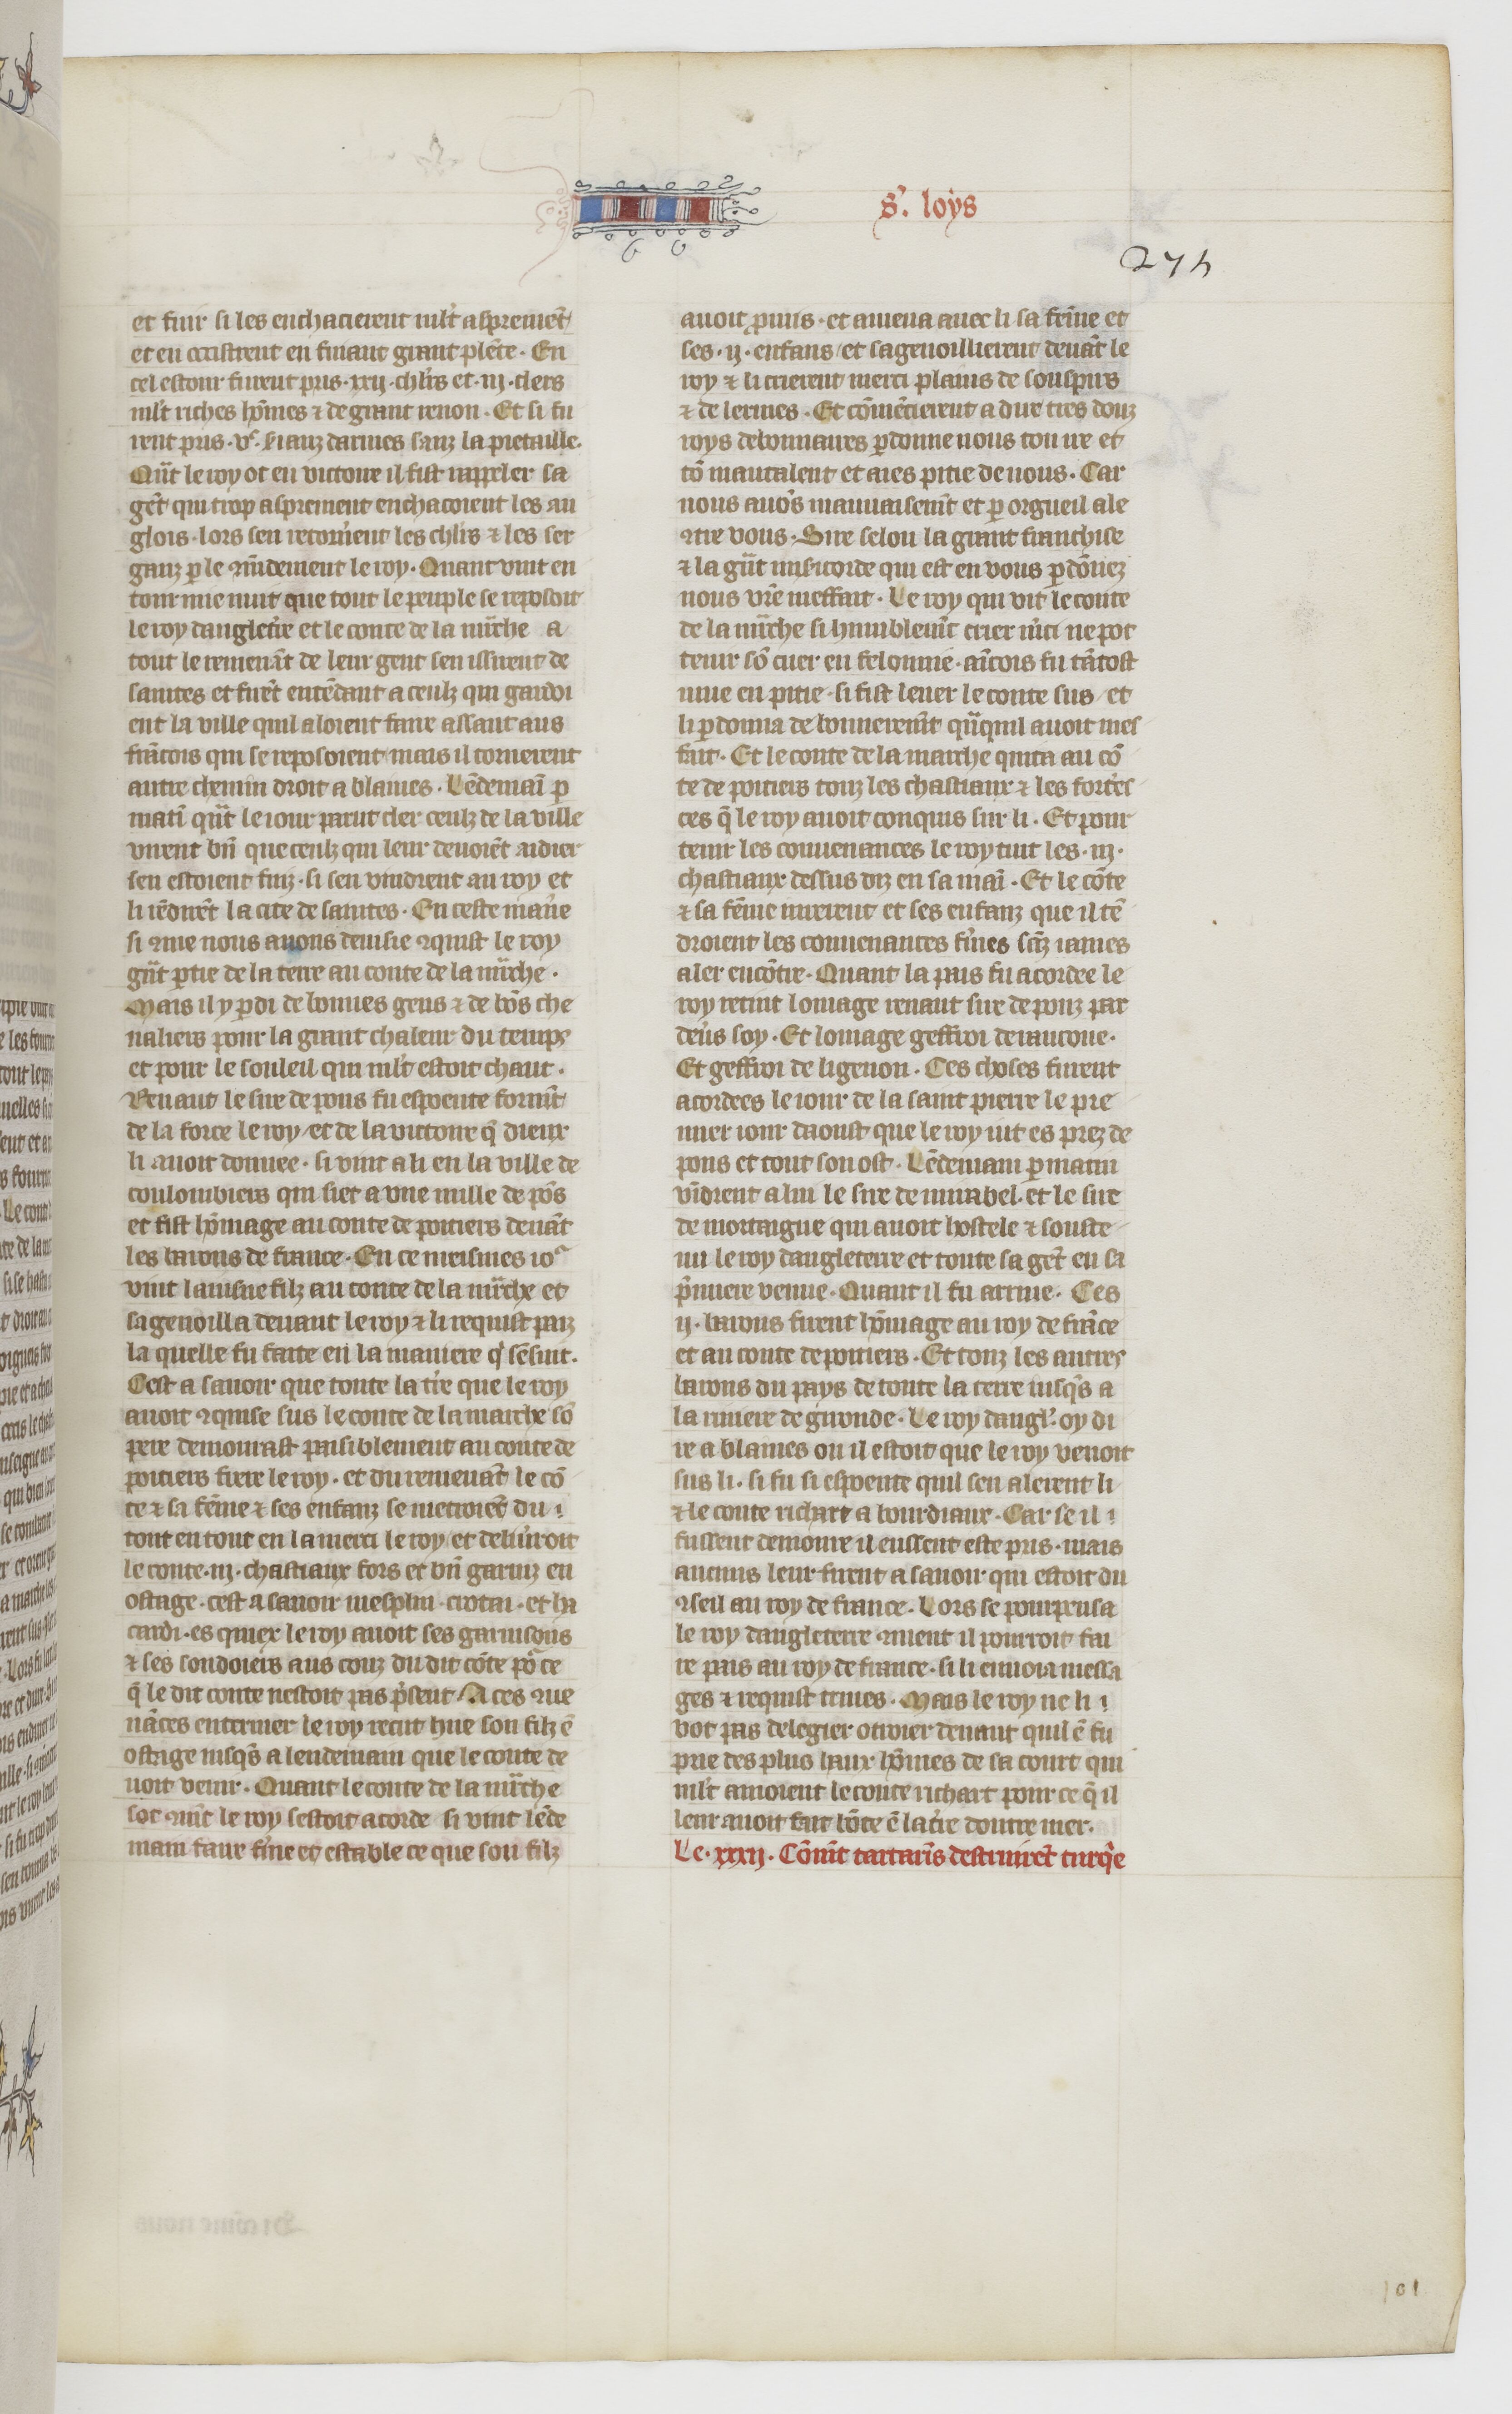 s᷑. loys
274
et fuir si les enchacierent ml't asprement̃
et en occistrent en fuiant grant plẽte. En
cel estour furent pris .xxij. chl'rs et .iij. clers
ml't riches hõmes ⁊ de grant renon. Et si fu
rent pris .vͨ. serianz darmes sanz la pietaille.
Qãt le roy ot eu victoire il fist rappeler sa
gẽt qui trop asprement enchacoient les an
glois. lors sen retornẽent les chl'rs ⁊ les ser
ganz ꝑ le ꝯmãdement le roy. Quant vint en
tour mie nuit que tout le peuple se reposoit
le roy dangletẽre et le conte de la mãrche a
tout le remenãt de leur gent sen issirent de
saintes et firẽt entẽdant a ceulz qui gardoi
ent la ville quil aloient faire assaut aus
frãcois qui se reposoient mais il tornerent
autre chemin droit a blaiues. Lẽdemaĩ ꝑ
matĩ qãt le iour parut cler ceulz de la ville
virent bñ que ceulz qui leur deuoiẽt aidier
sen estoient fuiz. si sen vindrent au roy et
li rẽdirẽt la cite de saintes. En ceste mañe
si ꝯme nous auons deuisie ꝯquist le roy
gãt ꝑtie de la terre au conte de la mãrche.
Mais il y ꝑdi de bonnes gens ⁊ de bõs che
ualiers pour la grant chaleur du temps
et pour le souleil qui ml't estoit chaut.
Renaut le sire de pons fu espoente formẽt
de la force le roy et de la victoire q̃ dieux
li auoit donnee. si vint a li en la ville de
coulombiers qui siet a vne mille de põs
et fist hõmage au conte de poitiers deuãt
les barons de france. En ce meismes ioʳ
vint lainsne filz au conte de la mãrche et
sagenoilla deuant le roy ⁊ li requist paiz
la quelle fu faite en la maniere qͥ sẽsuit.
Cest a sauoir que toute la tẽre que le roy
auoit ꝯquise sus le conte de la marche sõ
pere demourast paisiblement au conte de
poitiers frere le roy. et du remenãt le cõ
te ⁊ sa fẽme ⁊ ses enfanz se metroiẽt du
tout en tout en la merci le roy et deliũroit
le conte .iij. chastiaux fors et bñ garniz en
ostage. cest a sauoir merplin. crotai. et ha
cardi. es quiex le roy auoit ses garnisons
⁊ ses soudoiers aus couz du dit cõte poʳ ce
q̃ le dit conte nestoit pas p̃sent. A ces ꝯue
nãces enteriner le roy recut hue son filz ẽ
ostage iusq̃s a lendemain que le conte de
uoit venir. Quant le conte de la mãrche
sot ꝯmẽt le roy sestoit acorde si vint lẽde
main faire fẽme et estable ce que son filz
auoit ꝓmis. et amena auec li sa fẽme et
ses .ij. enfans et sagenoillierent deuãt le
roy ⁊ li crierent merci plains de souspirs
⁊ de lermes. Et cõmẽcierent a dire tres douz
roys debonnaires ꝑdonne nous ton ire et
tõ mautalent et aies pitie de nous. Car
nous auõs mauuaisemẽt et ꝑ orgueil ale
ꝯtre vous. Sire selon la grant franchise
⁊ la gãt miẽicorde qui est en vous ꝑdõnez
nous vr̃e meffait. Le roy qui vit le conte
de la mãrche si humblemẽt crier m̃ci ne pot
tenir sõ cuer en felonnie. aĩcois fu tãtost
mue en pitie. si fist leuer le conte sus et
li ꝑdonna de bonneremẽt qãquil auoit mes
fait. Et le conte de la marche quita au cõ
te de poitiers touz les chastiaux ⁊ les fortẽs
ces q̃ le roy auoit conquis sur li. Et pour
tenir les conuenances le roy tint les .iij.
chastiaux dessus diz en sa maĩ. Et le cõte
⁊ sa fẽme iurerent et ses enfanz que il tẽ
droient les conuenances fẽmes sãz iames
aler encõtre. Quant la pais fu acordee le
roy retint lomage renaut sire de ponz par
deũs soy. Et lomage geffroi de rancone.
Et geffroi de ligenon. Ces choses furent
acordees le iour de la saint pierre le pre
mier iour daoust que le roy iut es prez de
pons et tout son ost. Lẽdemain ꝑ matin
vĩdrent a lui le sire de mirabel. et le sire
de mortaigne qui auoit hostele ⁊ souste
nu le roy dangleterre et toute sa gẽt en sa
p̃miere venue. Quant il fu arriue. Ces
ij. barons firent hõmage au roy de frãce
et au conte de poitiers. Et touz les autres
barons du pays de toute la terre iusq̃s a
la riuiere de gironde. Le roy dangl'. oy di
re a blaiues ou il estoit que le roy venoit
sus li. si fu si espoente quil sen alerent li
⁊ le conte richart a bourdiaux. Car se il
fussent demoure il eussent este pris. mais
aucuns leur firent a sauoir qui estoit du
ꝯseil au roy de france. Lors se pourpensa
le roy dangleterre ꝯment il pourroit fai
re pais au roy de france. si li enuoia messa
ges ⁊ requist triues. Mais le roy ne li
vot pas de legier otroier deuant quil ẽ fu
prie des plus haux hõmes de sa court qui
ml't amoient le conte richart pour ce q̃ il
leur auoit fait bõte ẽ la tẽre doutre mer.
Le .xxxij. Cõmẽt tartarĩs destruirẽt turq̃e
101